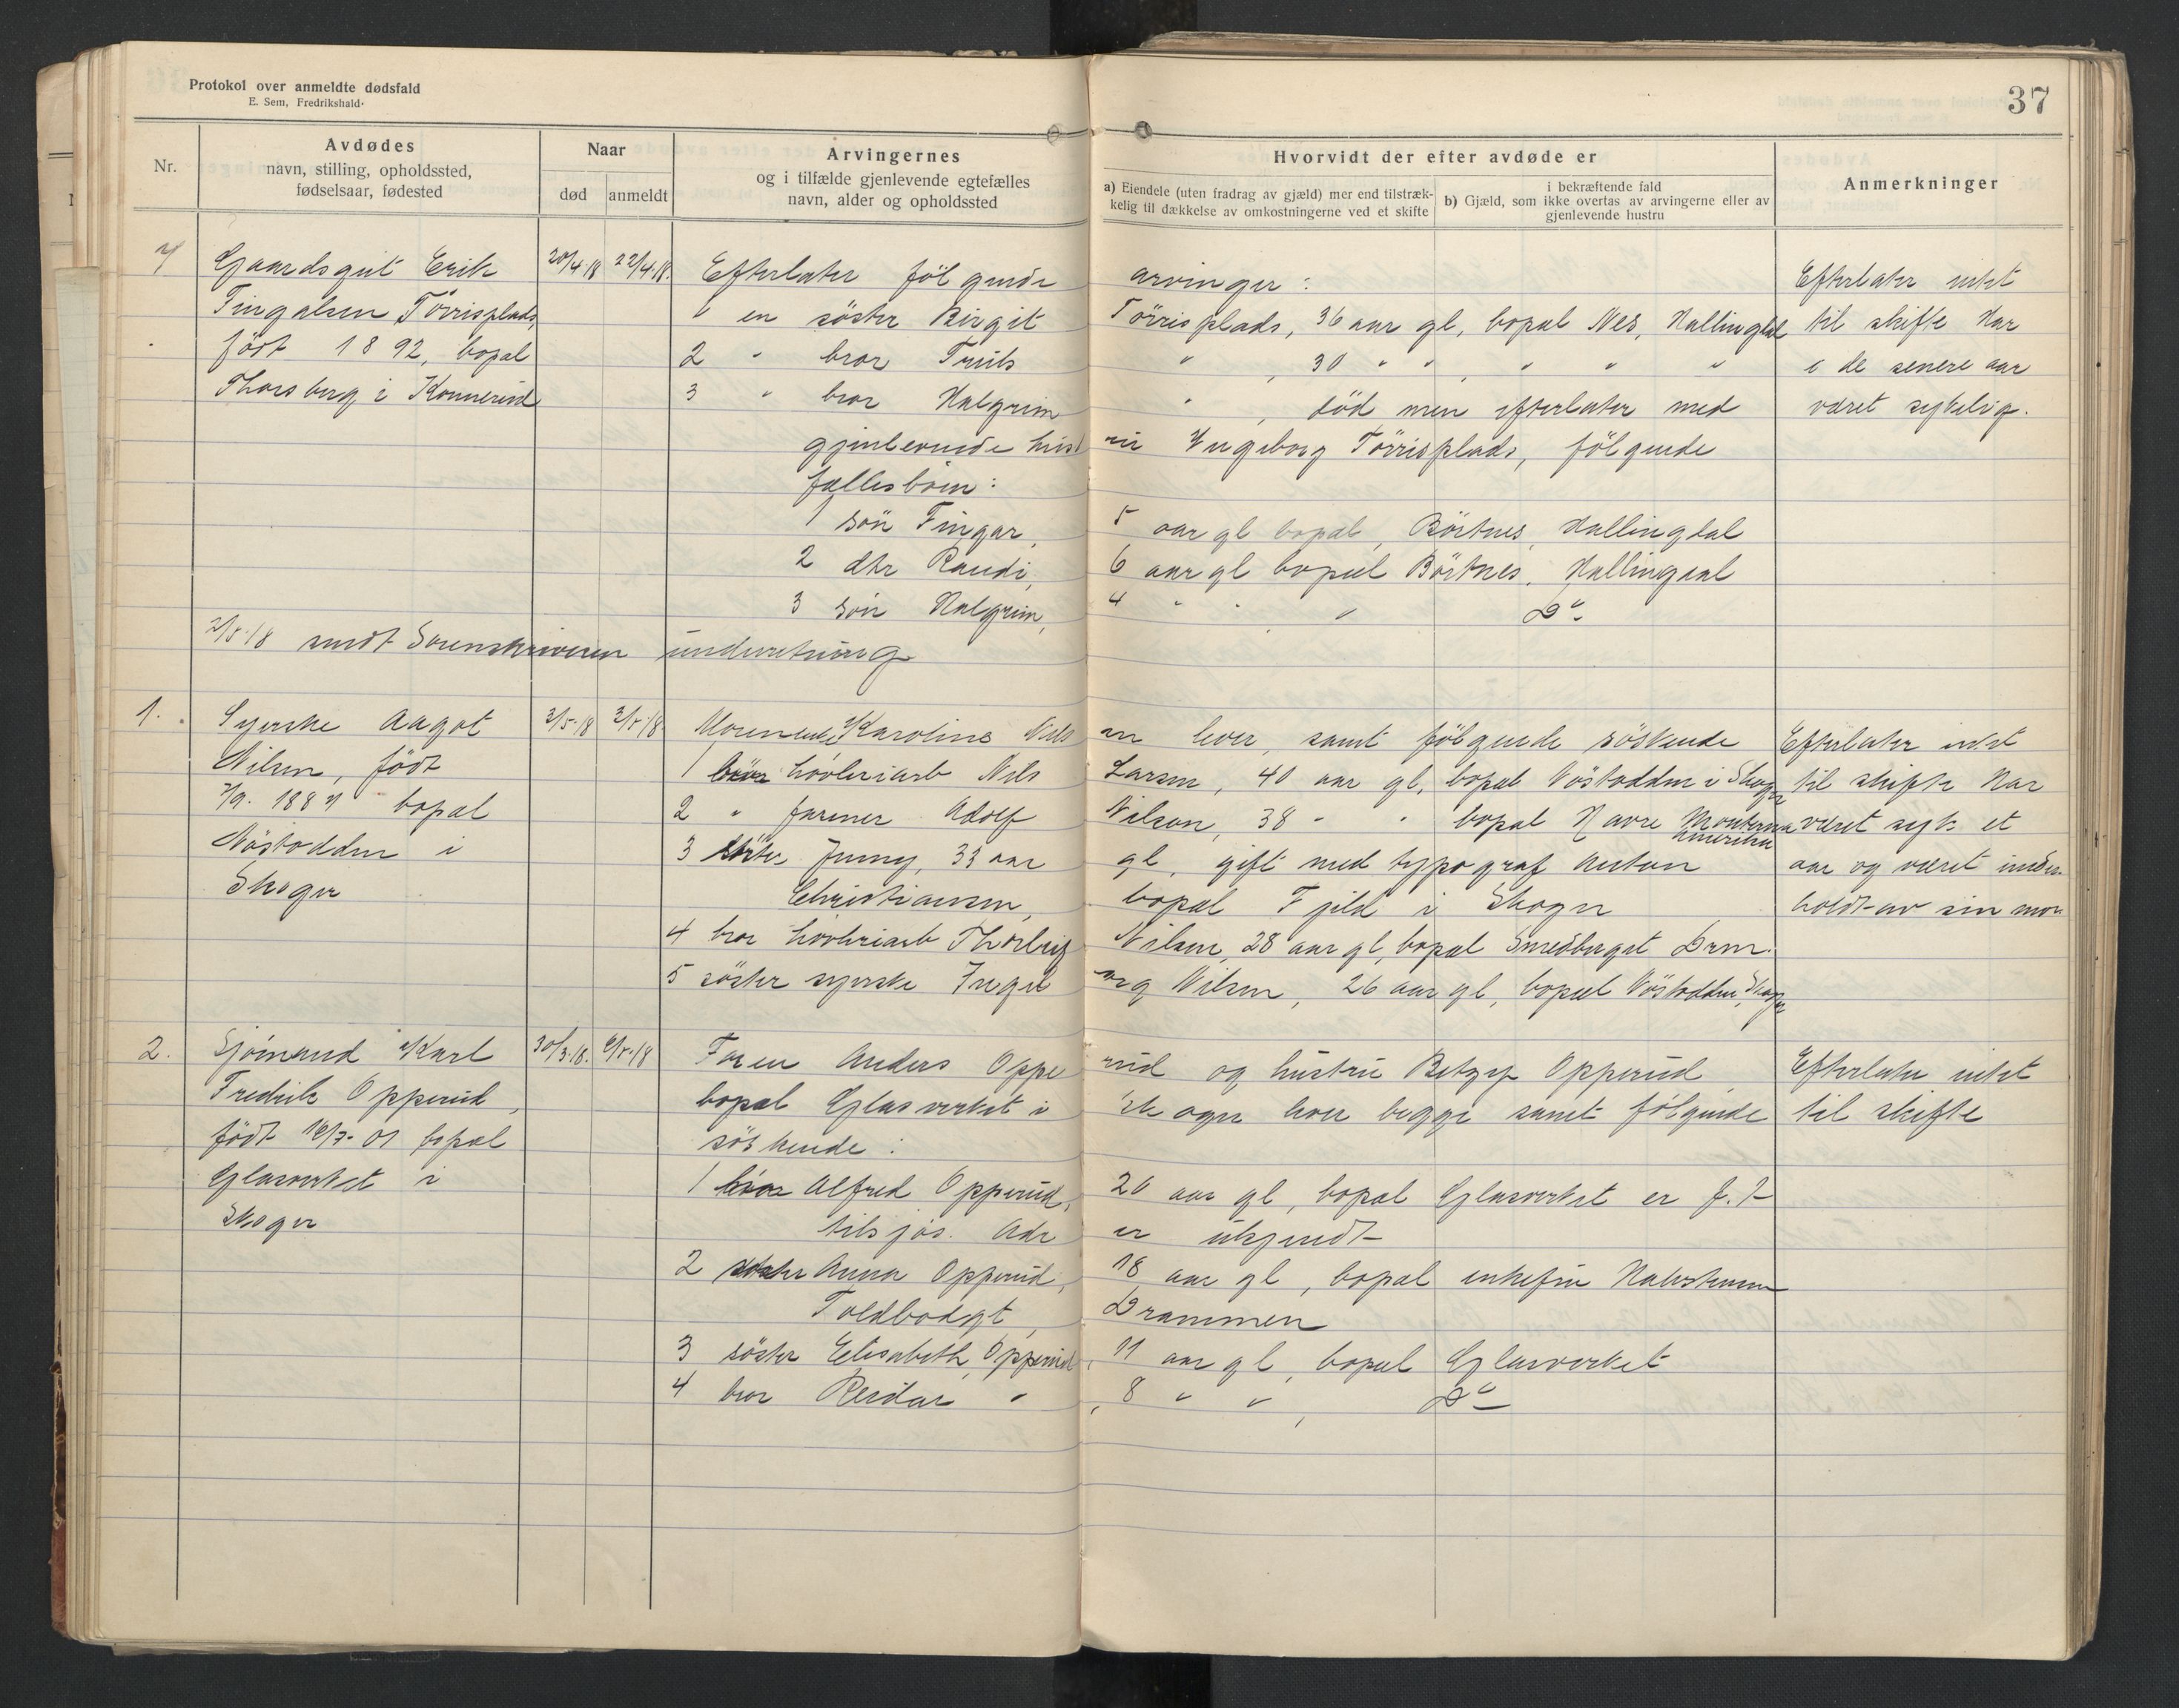 Protokol over anmeldte dødsfald
E. Sem, Fredrikshald.
37
Nr.
Avdødes
navn, stilling, opholdssted,
fødselsaar, fødested
Naar
død
anmeldt
Arvingernes
og i tilfælde gjenlevende egtefælles
navn, alder og opholdssted
Hvorvidt der efter avdøde er
a) Eiendele (uten fradrag av gjæld) mer end tilstræk-
kelig til dækkelse av omkostningerne ved et skifte
i bekræftende fald
b) Gjæld, som ikke overtas av arvingerne eller av
gjenlevende hustru
Anmerkninger
7 Gaardsgut Erik 20/4.18 22/4.18. Efterlater følgende arvinger: Efterlater intet
Fingalsen Törrisplads, 1 en söster Birgit Törrisplads, 36 aar gl, bopæl Nes, Hallingdal til skifte Har
født 1892, bopæl 2 " bror Truls " , 30 " " , " " " i de senere aar
Thorsberg i Konnerud 3 " bror Halgrim " , död men efterlater med været sykelig.
gjenlevende hustru Ingeborg Törrisplads, fölgende
fællesbörn:
1 sön Fingar, 5 aar gl bopæl, Börtnes, Hallingdal
2 dtr Randi, 6 aar gl bopæl Börtnes, Hallingdal
3 sön Halgrim, 4 " " " Do
2/5.18 sendt Sorenskriveren underetning
1. Syerske Aagot 2/5.18 3/5.18 Moren enke Karoline Nilsen lever, samt fölgende söskende Efterlater intet
Nilsen, født 1 bror hövleriarb Nils Larsen, 40 aar gl, bopæl Nöstodden i Skoger til skifte Har
7/9. 1887 bopæl 2 " farmer Adolf Nilson, 38 " " bopæl Havre Montana Amerika været syk et
Nöstodden i 3 söster Jenny, 33 aar gl, gift med typograf Anton aar og været under-
Skoger Christiansen, bopæl Fjeld i Skoger holdt av sin mor
4 bror hövleriarb Thorleif Nilsen, 28 aar gl, bopæl Smedberget Drm.
5 söster syerske Ingeborg Nilsen, 26 aar gl, bopæl Nöstodden, Skoger
2. Sjömand Karl 30/3.18. 6/5.18 Faren Anders Opperud og hustru Betzy Opperud Efterlater intet
Fredrik Opperud, bopæl Glasverket i Skoger lever begge samt fölgende til skifte
født 01 bopæl söskende:
Glasverket i 1 bror Alfred Opperud, 20 aar gl, bopæl Glasverket er f. t
Skoger tilsjös. Adr er ukjendt
2 söster Anna Opperud, 18 aar gl, bopæl enkefru
Toldbodgt, Drammen
3 söster Elisabeth Opperud, 11 aar gl, bopæl Glasverket
4 bror Reidar " , 8 " " , Do